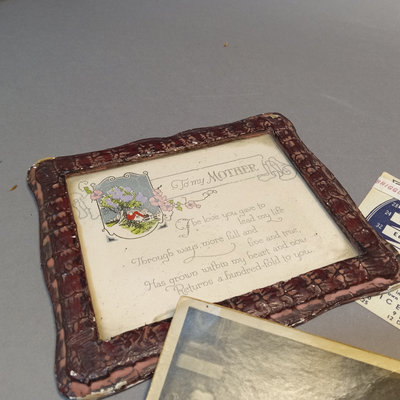 To my MOTHER
The love you gave to lead my life
Through ways more full and fine and true,
Has grown within my heart and now
Returns a hundred fold to you.